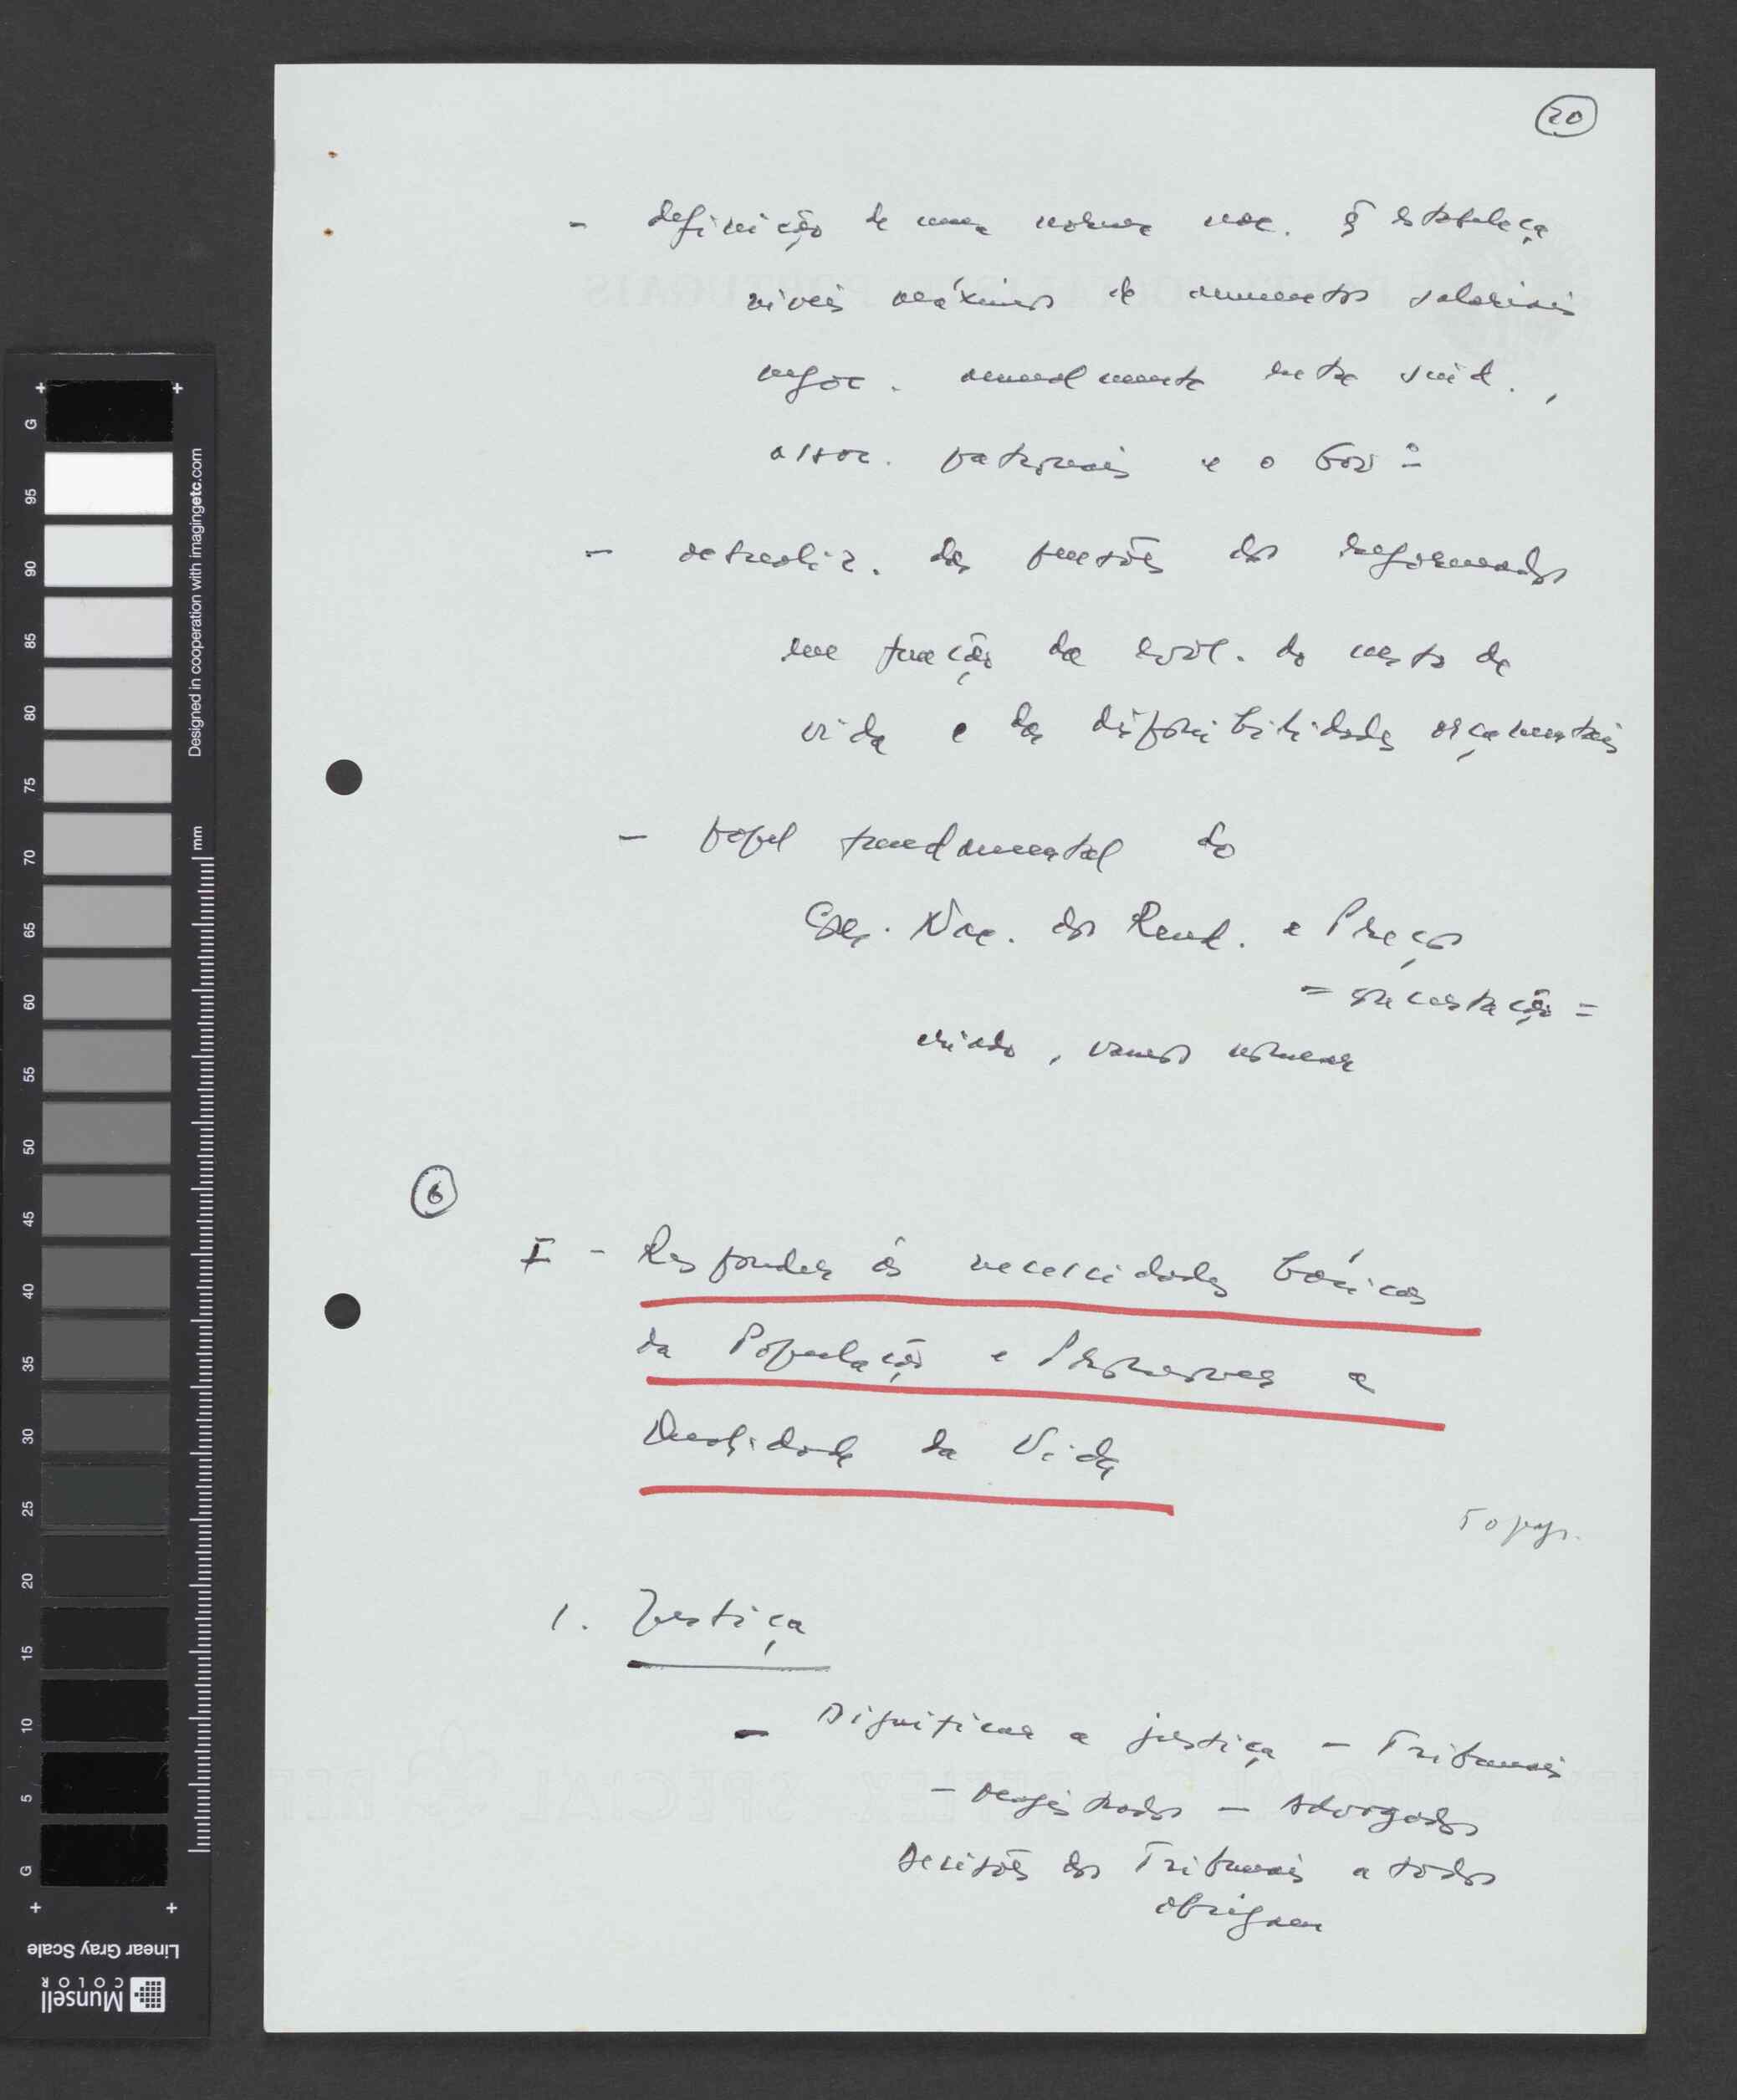 20
- definição de uma norma nac. q̃ estabeleça
níveis máximos de aumentos salariais
negoc. anualmente entre sind.,
assoc. patronais e o Govº
- actualiz. das pensões dos reformados
em função da evol. do custo da
vida e das disponibilidades orçamentais
- papel fundamental do
Cons. Nac. dos Rend. e Preços
= concertação =
criado, vamos nomear
6
I - Responder às necessidades básicas
da População e Preservar a
Qualidade da Vida
50 pags.
1. Justiça
- Dignificar a justiça - Tribunais
- Magistrados - Advogados
Decisões dos Tribunais a todos
obrigam
G
95
90
85
80
75
70
65
60
55
50
45
40
35
30
25
20
15
10
5
G
mm
Designed in cooperation with imagingetc.com
Linear Gray Scale
Munsell
COLOR